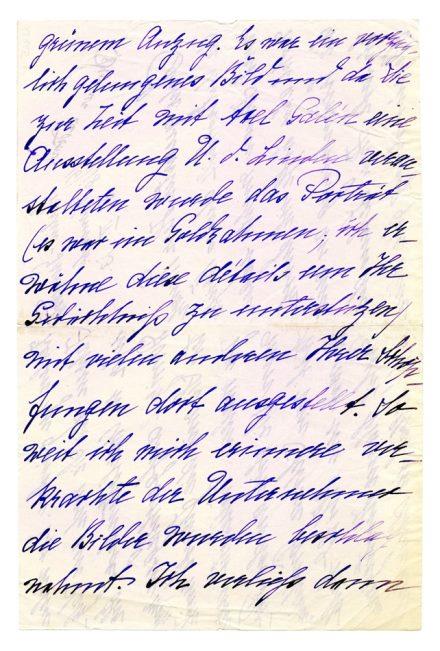 grünem Anzug. Es war ein vorzüg-
lich gelungenes Bild und da Sie
zur Zeit mit Axel Galén eine
Ausstellung U. d. Linden veran-
stalteten wurde das Porträt
(es war im Goldrahmen; ich er-
wähne diese détails um Ihr
Gedächtniß zu unterstützen)
mit vielen anderen Ihrer Schöp-
fungen dort ausgestellt. So
weit ich mich erinnere ver-
krachte der Unternehmer
die Bilder wurden beschlag
nahmt. Ich verließ dann